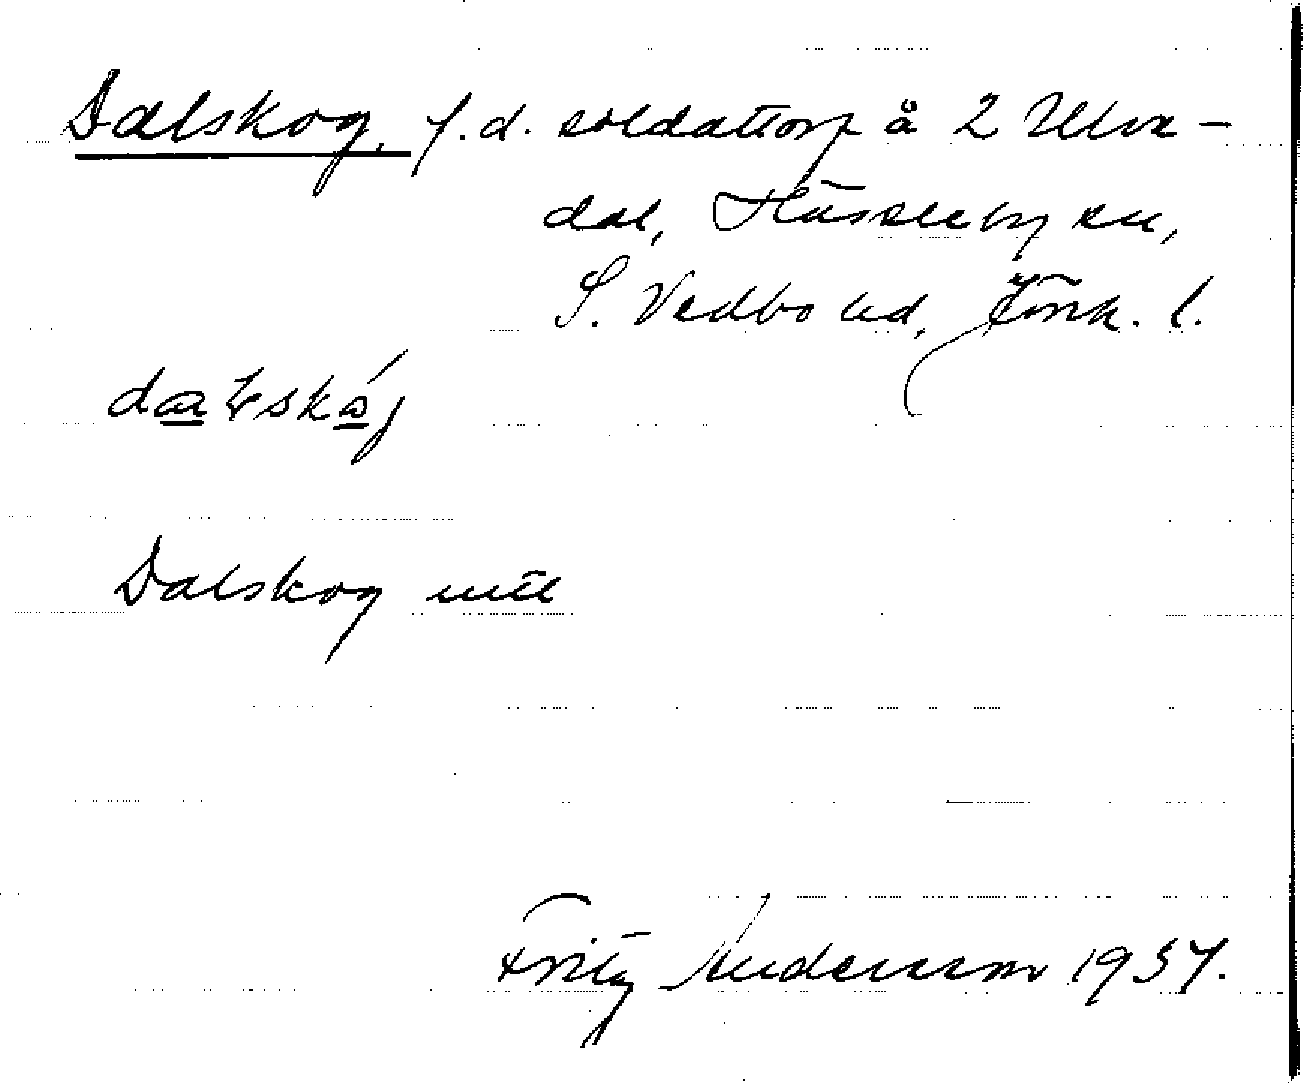 Dalskog, f.d. soldattorp å 2 Ulva-
dal, Hässleby sn,
S. Vedbo hd, Jönk. l.
Dalskog
Fritz Andersson 1937.